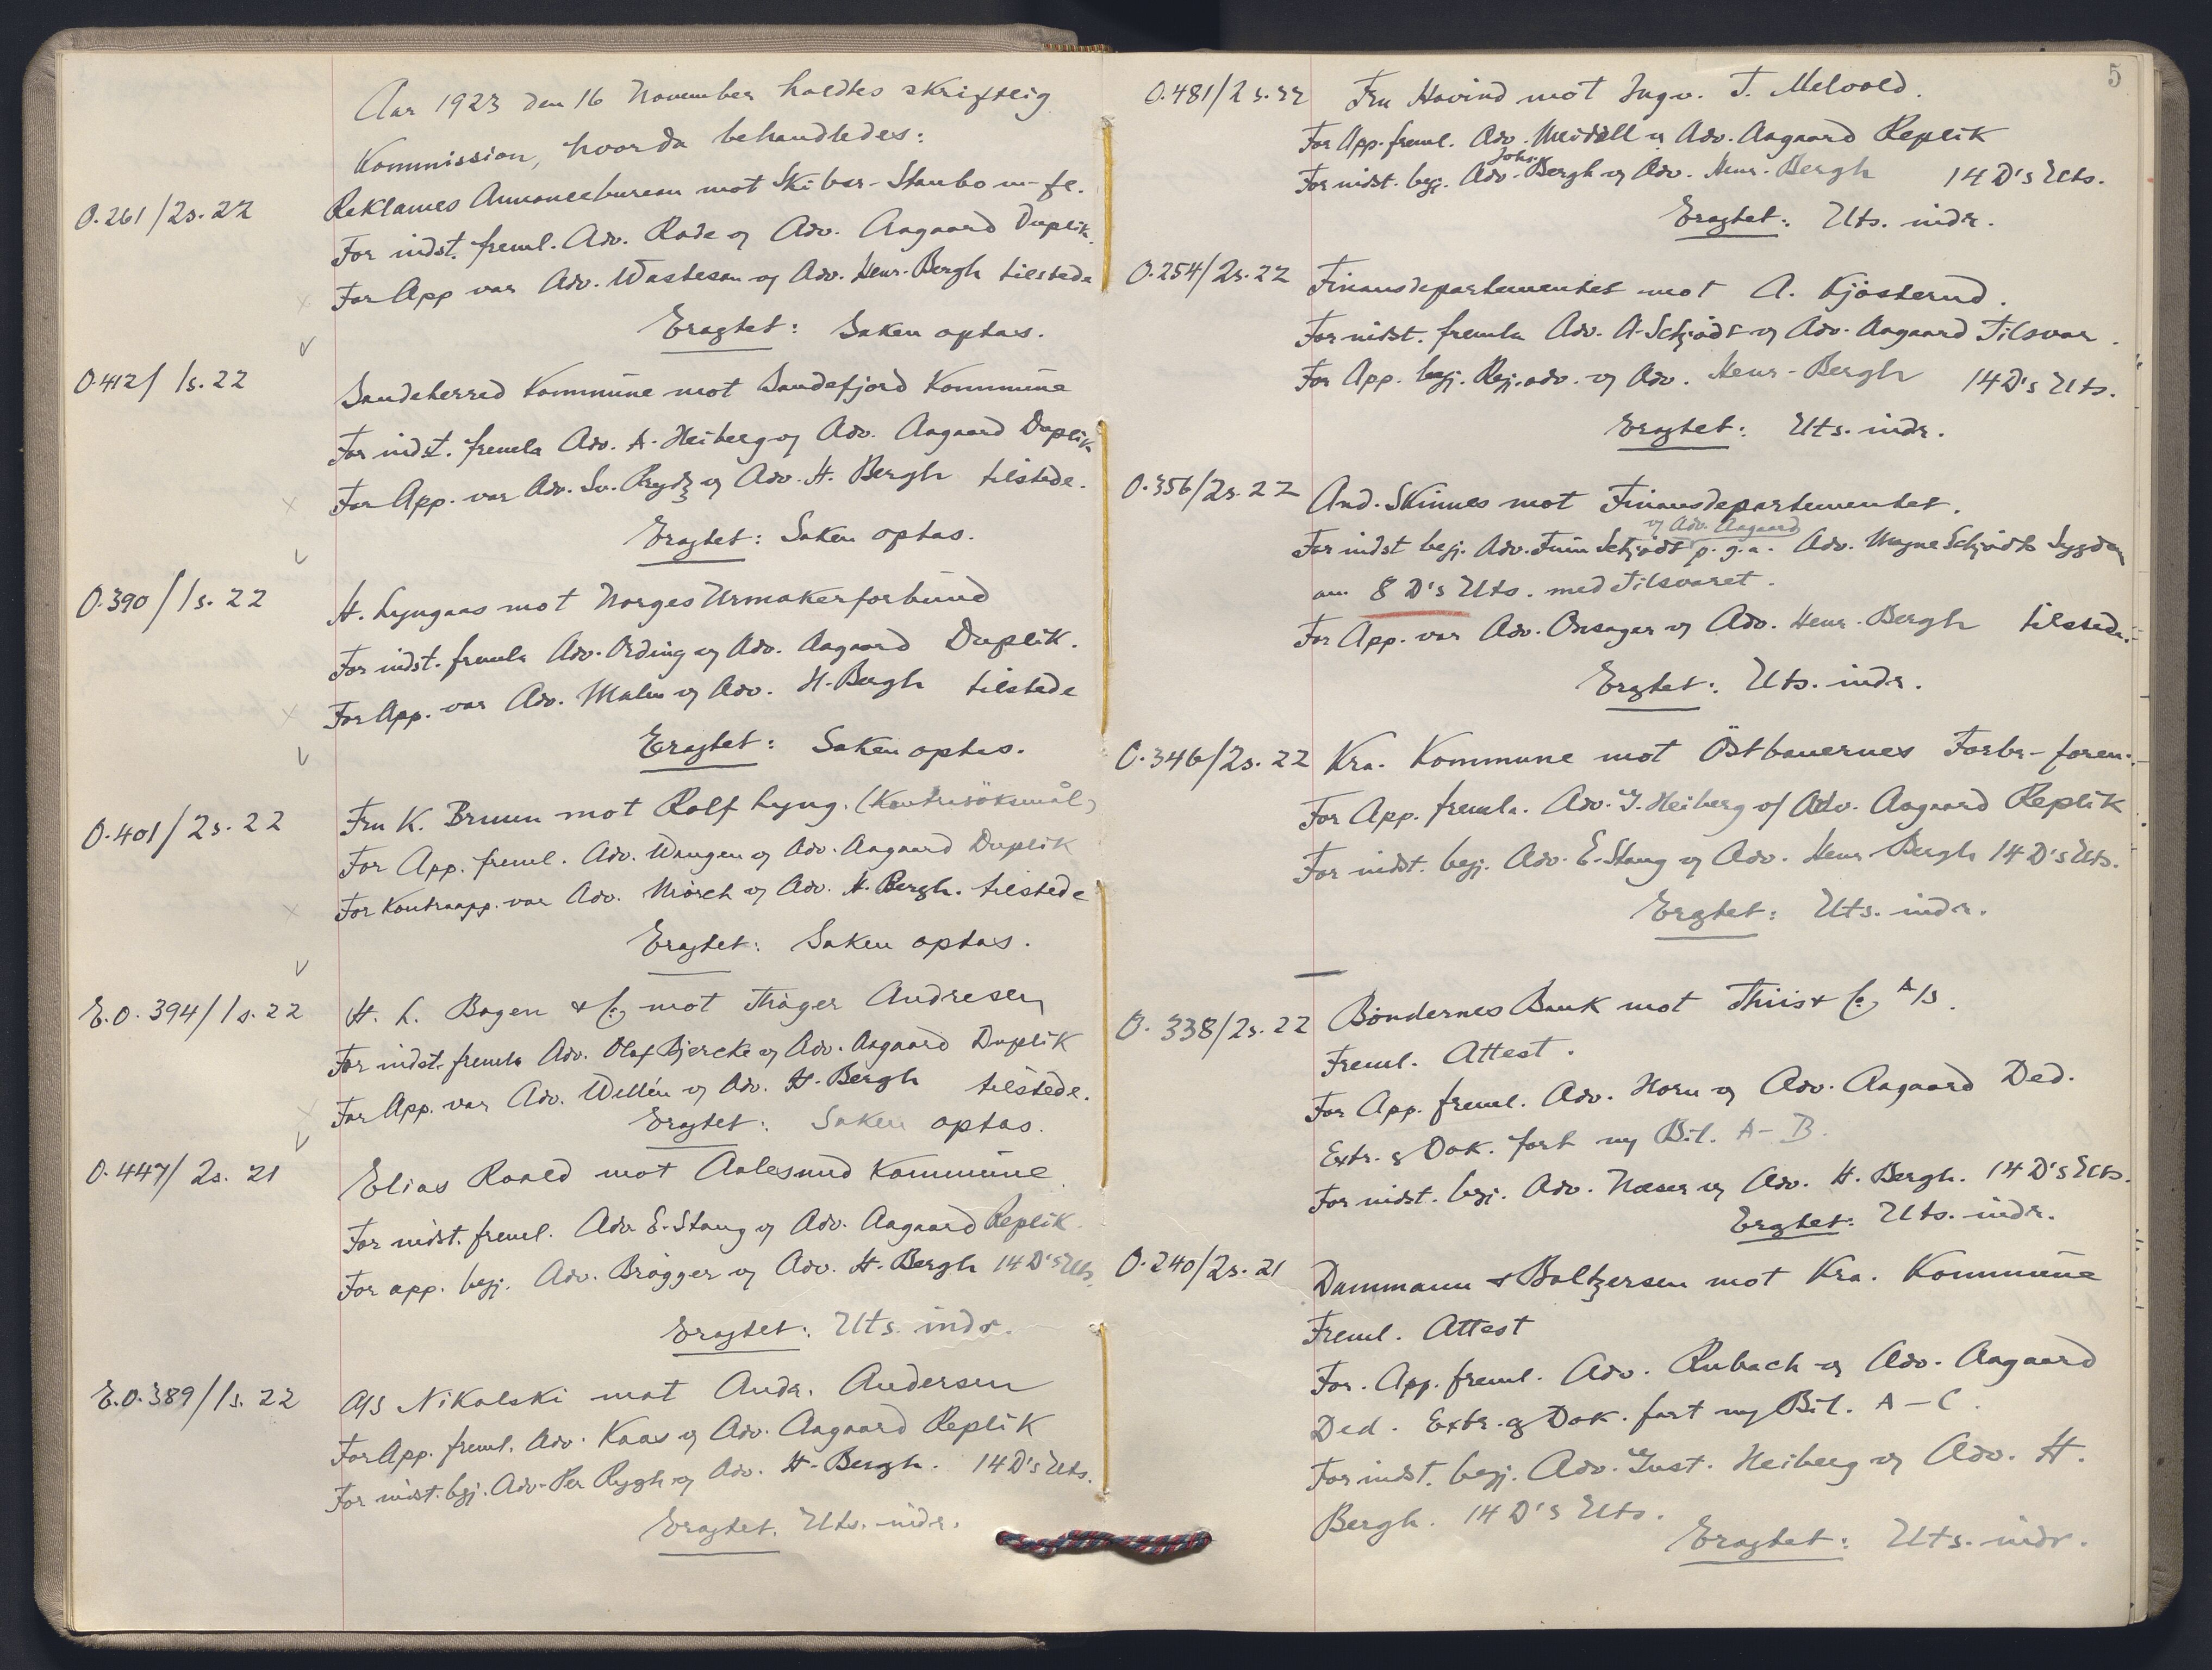 Aar 1923 den 16 November holdtes skriftlig
Kommission, hvorda behandledes:
O.261/2s.22 Reklames Annoncebureau mot Skibsr. Staubo m-fl.
For indst. freml. Adv. Rode og Adv. Aagaard Duplik.
For App var Adv. Wasteson og Adv. Henr. Bergh tilstede
Eragtet: Saken optas.
O.412/1s.22 Sandeherred Kommune mot Sandefjord Kommune
For indst. fremla Adv. A. Heiberg og Adv. Aagaard Duplik
For App. var Adv. Sv. Brydz og Adv. H. Bergh tilstede.
Eragtet: Saken optas.
O.390/1s.22 H. Lyngaas mot Norges Urmakerforbund
For indst. fremla Adv. Ording og Adv. Aagaard Duplik.
For App. var Adv. Malm og Adv. H. Bergh tilstede
Eragtet: Saken optas.
O.401/2s.22 Fru K. Bruun mot Rolf Lyng. (Kontrasöksmål)
For App. freml. Adv. Wangen og Adv. Aagaard Duplik
For Kontraapp. var Adv. Mörch og Adv. H. Bergh. tilstede
Eragtet: Saken optas.
E.O.394/1s.22 H. L. Bogen & Co, mot Thrager Andresen
For indst. fremla Adv. Olaf Bjercke og Adv. Aagaard Duplik
For App. var Adv. Wellén og Adv. H. Bergh tilstede.
Eragtet: Saken optas.
O.447/2s.21 Elias Roald mot Aalesund Kommune.
For indst. freml. Adv E. Stang og Adv. Aagaard Replik.
For app. begj. Adv. Brögger og Adv. H. Bergh 14 D's Uts.
Eragtet: Uts. indr.
E.O.389/1s.22 A/S Nikolski mot Andr. Andersen
For App. freml. Adv. Kaas og Adv. Aagaard Replik
For indst. bgj. Adv. Per Rygh og Adv. H. Bergh. 14 D's Uts.
Eragtet. Uts. indr.
5
O.481/2s.22 Fru Hovind mot Ingv. T. Melvold.
For App. freml. Adv. Meidell og Adv. Aagaard Replik
For indst. begj. Adv. Johs. Bergh og Adv. Henr. Bergh 14 D's Uts.
Eragtet: Uts. indr.
O.254/2s.22 Finansdepartementet mot A. Kjösterud.
For indst. fremla Adv. A. Schjödt og Adv. Aagaard Tilsvar.
For App. begj. Rej.adv. og Adv. Henr. Bergh 14 D's Uts.
Eragtet: Uts. indr.
O.356/2s.22 And. Skinnes mot Finansdepartementet.
og Adv. Aagaard
For indst begj. Adv. Finn Schjödt p.g.a. Adv. Magne Schjödts Sygdom
om 8 D's Uts. med Tilsvaret.
For App. var Adv. Onsager og Adv. Henr. Bergh tilstede.
Eragtet: Uts. indr.
O.346/2s.22 Kra. Kommune mot Östbanernes Forbr-foren.
For App. fremla. Adv. J. Heiberg og Adv. Aagaard Replik
For indst. begj. Adv. E. Stang og Adv. Henr Bergh 14 D's Uts.
Eragtet: Uts. indr.
O.338/2s.22 Böndernes Bank mot Thiis & Co, A/S.
Freml. Attest.
For App. freml. Adv. Horn og Adv. Aagaard Ded.
Extr. & Dok. fort ny Bil. A-B.
For indst. begj. Adv. Næser og Adv. H. Bergh. 14 D's Uts.
Eragtet: Uts. indr.
O.240/2s.21 Dammann & Baltzersen mot Kra. Kommune
Freml. Attest
For. App. freml. Adv. Rubach og Adv. Aagaard
Ded. Extr. & Dok. fort ny Bil. A-C.
For indst. begj. Adv. Just. Heiberg og Adv. H.
Bergh. 14 D's Uts.
Eragtet: Uts. indr.